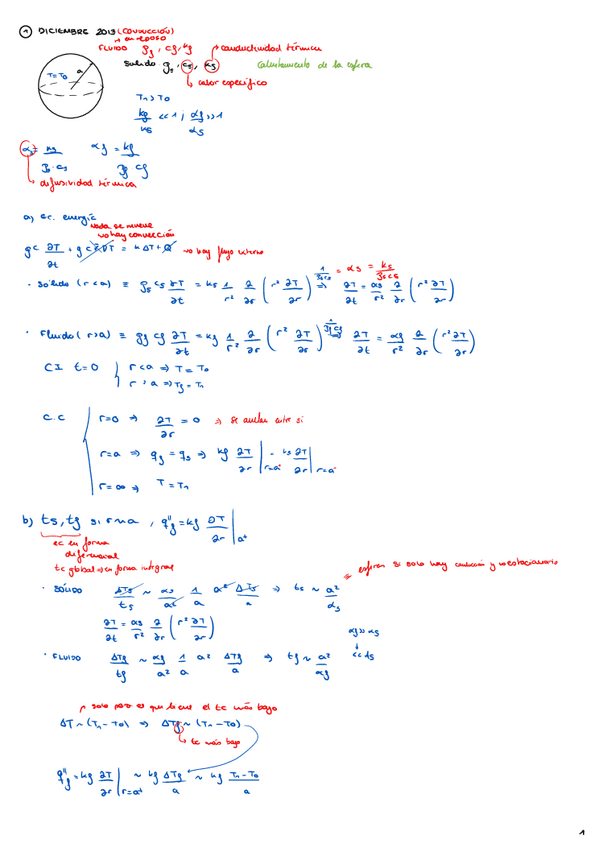 ① DICIEMBRE 2013 (CONDUCCIÓN)
en reposo
FLUIDO ρg, cg, kg → conductividad térmica
T=T₀ a
sólido ρs, cs, ks calentamiento de la esfera
↳ calor específico
T₁ > T₀
kg/ks << 1 ; αg/αs >> 1
αs = ks/ρs·cs αg = kg/ρg cg
↳ difusividad térmica
a) Ec. energía
nada se mueve
no hay convección
ρc ∂T/∂t + ρc v̄ ∇T = k ΔT + Q → no hay flujo interno
· Sólido (r<a) ≡ ρs cs ∂T/∂t = ks 1/r² ∂/∂r (r² ∂T/∂r) ⇒ 1/ρscs = αs = ks/ρscs ∂T/∂t = αs/r² ∂/∂r (r² ∂T/∂r)
· Fluido (r>a) ≡ ρg cg ∂T/∂t = kg 1/r² ∂/∂r (r² ∂T/∂r) 1/ρg cg ⇒ ∂T/∂t = αg/r² ∂/∂r (r² ∂T/∂r)
CI t=0 r<a ⇒ T = T₀
r>a ⇒ Tg = T₁
C.C r=0 ⇒ ∂T/∂r = 0 ⇒ se anulan entre sí
r=a ⇒ qg = qs ⇒ kg ∂T/∂r |r=a⁺ = ks ∂T/∂r |r=a⁻
r=∞ ⇒ T=T₁
b) ts, tg si r~a, q"g = kg ∂T/∂r |a⁺
ec en forma
diferencial
tc global ⇒ en forma integral
esferas si solo hay conducción y no estacionario
· SÓLIDO ΔTs/ts ~ αs/a² 1/a a² ΔTs/a ⇒ ts ~ a²/αs
∂T/∂t = αs/r² ∂/∂r (r² ∂T/∂r)
αg >> αs
· FLUIDO ΔTg/tg ~ αg/a² 1/a a² ΔTg/a ⇒ tg ~ a²/αg << ts
solo para el que tiene el tc más bajo
ΔT ~ (T₁-T₀) ⇒ ΔTg ~ (T₁-T₀)
↳ tc más bajo
q"g = kg ∂T/∂r |r=a⁺ ~ kg ΔTg/a ~ kg T₁-T₀/a
1